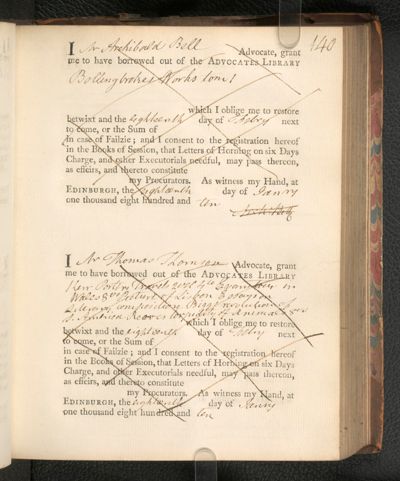 140
I Mr Archibald Bell Advocate, grant
me to have borrowed out of the ADVOCATES LIBRARY
Bollingbroke's Works tom 1
which I oblige me to restore
betwixt and the eighteenth day of Febry next
to come, or the Sum of
in case of Failzie; and I consent to the registration hereof
in the Books of Session, that Letters of Horning on six Days
Charge, and other Executorials needful, may pass thereon,
as effeirs, and thereto constitute
my Procurators. As witness my Hand, at
EDINBURGH, the eighteenth day of Janry
one thousand eight hundred and ten
Archd Bell
I Mr Thomas Thomson Advocate, grant
me to have borrowed out of the ADVOCATES LIBRARY
Kerr Porters Travels 2 vols 4to Excursion in
Wales 8vo Picture of Lisbon
Literary Composition
which I oblige me to restore
betwixt and the eighteenth day of Febry next
to come, or the Sum of
in case of Failzie; and I consent to the registration hereof
in the Books of Session, that Letters of Horning on six Days
Charge, and other Executorials needful, may pass thereon,
as effeirs, and thereto constitute
my Procurators. As witness my Hand, at
EDINBURGH, the eighteenth day of Janry
one thousand eight hundred and ten